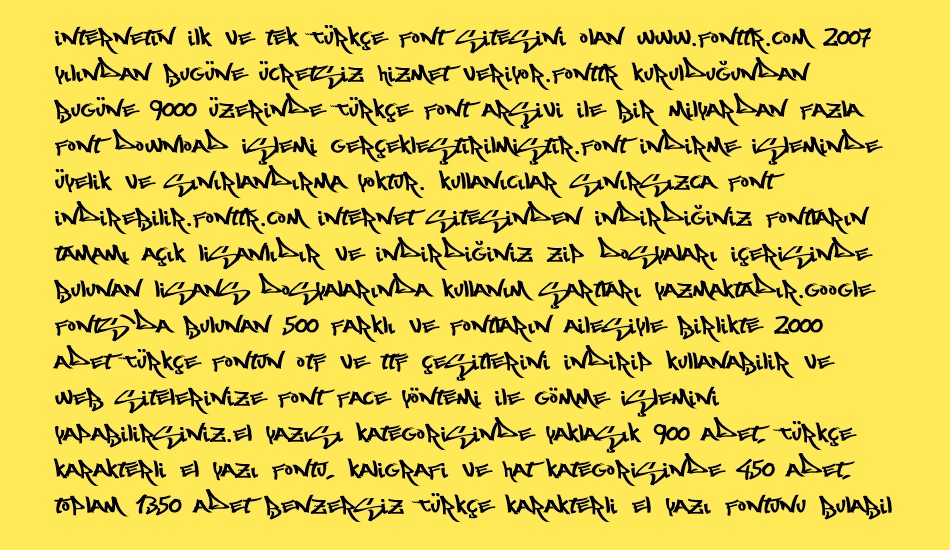 İNTERNETİN İLK VE TEK TÜRKÇE FONT SİTESİNİ OLAN WWW.FONTTR.COM 2007
YILINDAN BUGÜNE ÜCRETSİZ HİZMET VERİYOR.FONTTR KURULDUĞUNDAN
BUGÜNE 9000 ÜZERİNDE TÜRKÇE FONT ARŞİVİ İLE BİR MİLYARDAN FAZLA
FONT DOWNLOAD İŞLEMİ GERÇEKLEŞTİRİLMİŞTİR.FONT İNDİRME İŞLEMİNDE
ÜYELİK VE SINIRLANDIRMA YOKTUR. KULLANICILAR SINIRSIZCA FONT
İNDİREBİLİR.FONTTR.COM İNTERNET SİTESİNDEN İNDİRDİĞİNİZ FONTLARIN
TAMAMI AÇIK LİSANLIDIR VE İNDİRDİĞİNİZ ZIP DOSYALARI İÇERİSİNDE
BULUNAN LİSANS DOSYALARINDA KULLANIM ŞARTLARI YAZMAKTADIR.GOOGLE
FONTS'DA BULUNAN 500 FARKLI VE FONTLARIN AİLESİYLE BİRLİKTE 2000
ADET TÜRKÇE FONTUN OTF VE TTF ÇEŞİTLERİNİ İNDİRİP KULLANABİLİR VE
WEB SİTELERİNİZE FONT FACE YÖNTEMİ İLE GÖMME İŞLEMİNİ
YAPABİLİRSİNİZ.EL YAZISI KATEGORİSİNDE YAKLAŞIK 900 ADET, TÜRKÇE
KARAKTERLİ EL YAZI FONTU, KALİGRAFİ VE HAT KATEGORİSİNDE 450 ADET,
TOPLAM 1350 ADET BENZERSİZ TÜRKÇE KARAKTERLİ EL YAZI FONTUNU BULABİL